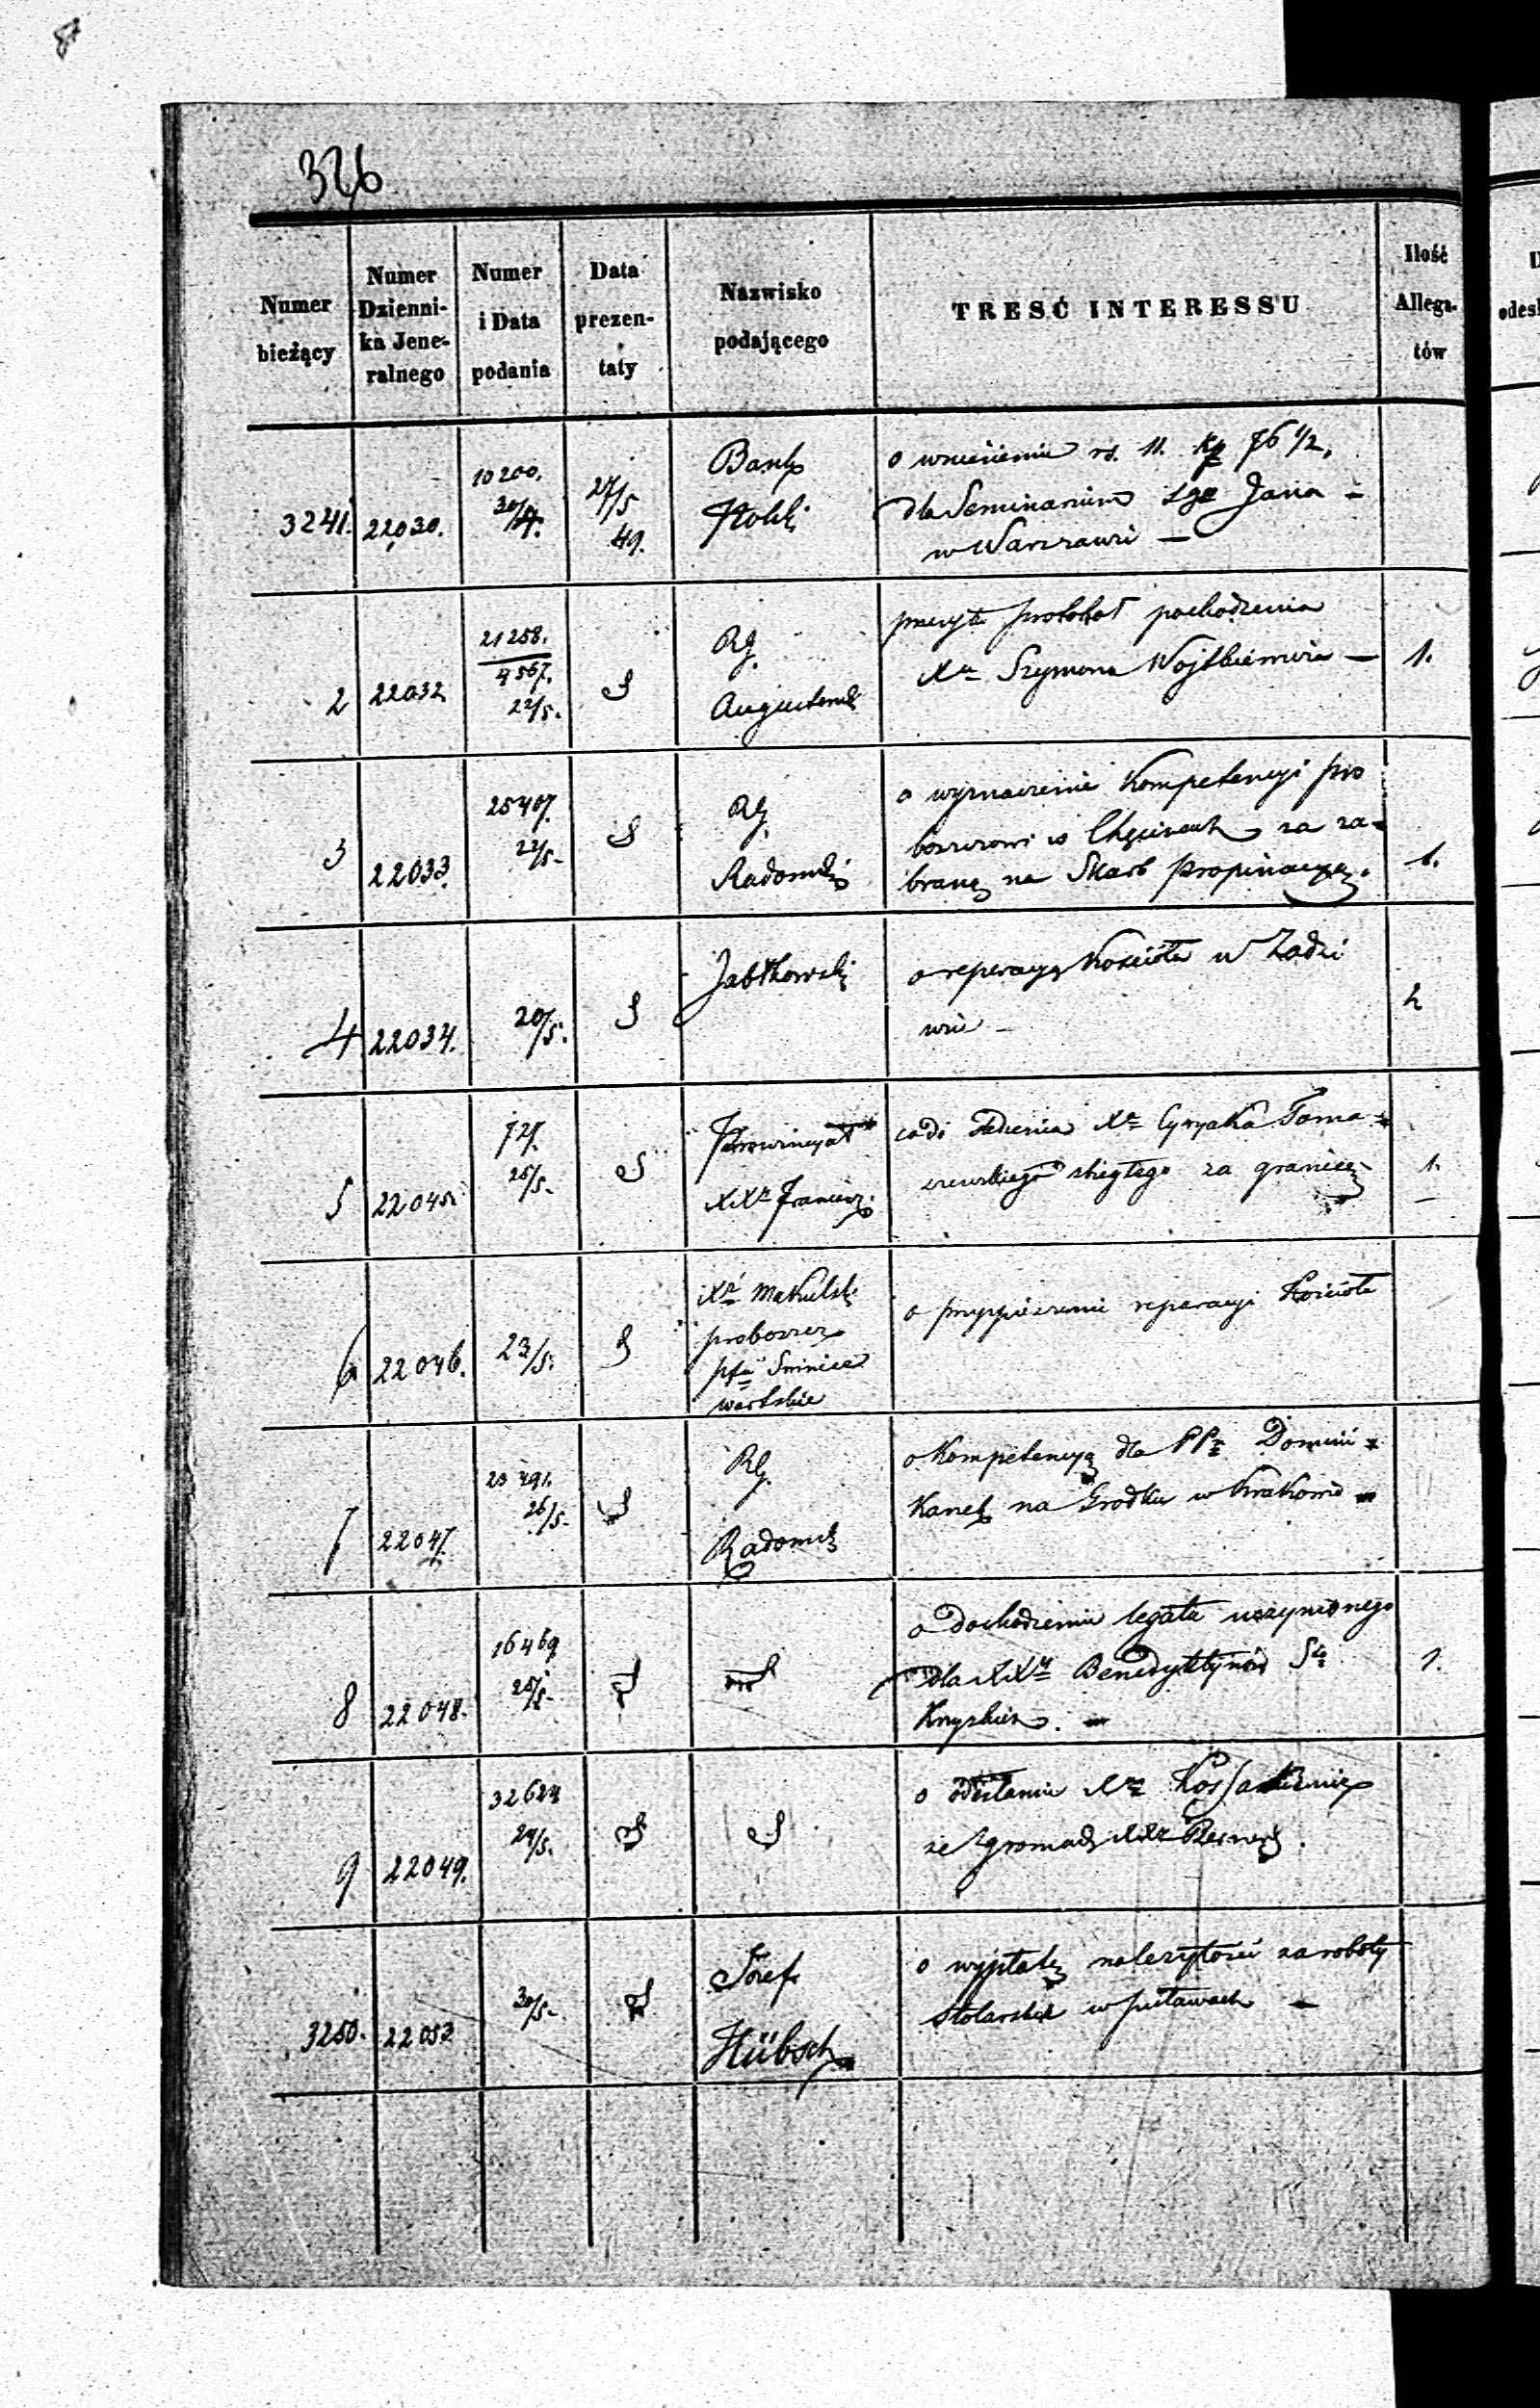 326
Numer bieżący
Numer Dzienni- ka Jene- ralnego
Numer i Data podania
Data prezen- taty
Nazwisko podającego
TRESĆ INTERESSU
Ilość Allega- tów
3241. 22030. 10200. 27/5 49. Bank Polski
o wniesienie rs. 11. kp 76 1/2,
dla Seminarium Sgo Jana –
w Warszawie —
2 22032 21258. 4567. 22/5. RG. Augustowski
przesyła protokół pochodzenia
Xa Szymona Wojtkiewicza — 1.
3 22033. 25407. 22/5- RG. Radomski
o wyznaczenie kompetencyi pro
boszczowi w Chęcinach za za-
braną na Skarb propinacyą. 1.
4 22034. 20/5. Jabłkowski
o reperacyą Kościoła w Zadzi
wie – 2
5 22045. 727. 25/5- Prowincyał XXa Francisz.
co do śledzenia Xa Cyryaka Toma-
szewskiego zbiegłego za granicę 1.
6 22046. 23/5. Xa Makulski proboszcz pfii wartskie
o przyspieszenie reparacyi Kościoła
7 22047. 23491. 26/5- RG. Radomski
o Kompetencyą dla PPn Domini-
kanek na Gródku w Krakowie –
8 22048. 16469 25/5-
o dochodzenie legatu uczynionego
dla XXy Benedyktynów St.
Krzyskich. – 1.
9 22049. 32624 24/5.
o odesłanie Xa
ze Zgromadz.
3250. 22053 20/5- Józef Hübsch
o wypłatę należytości za roboty
stolarskie w Puławach –